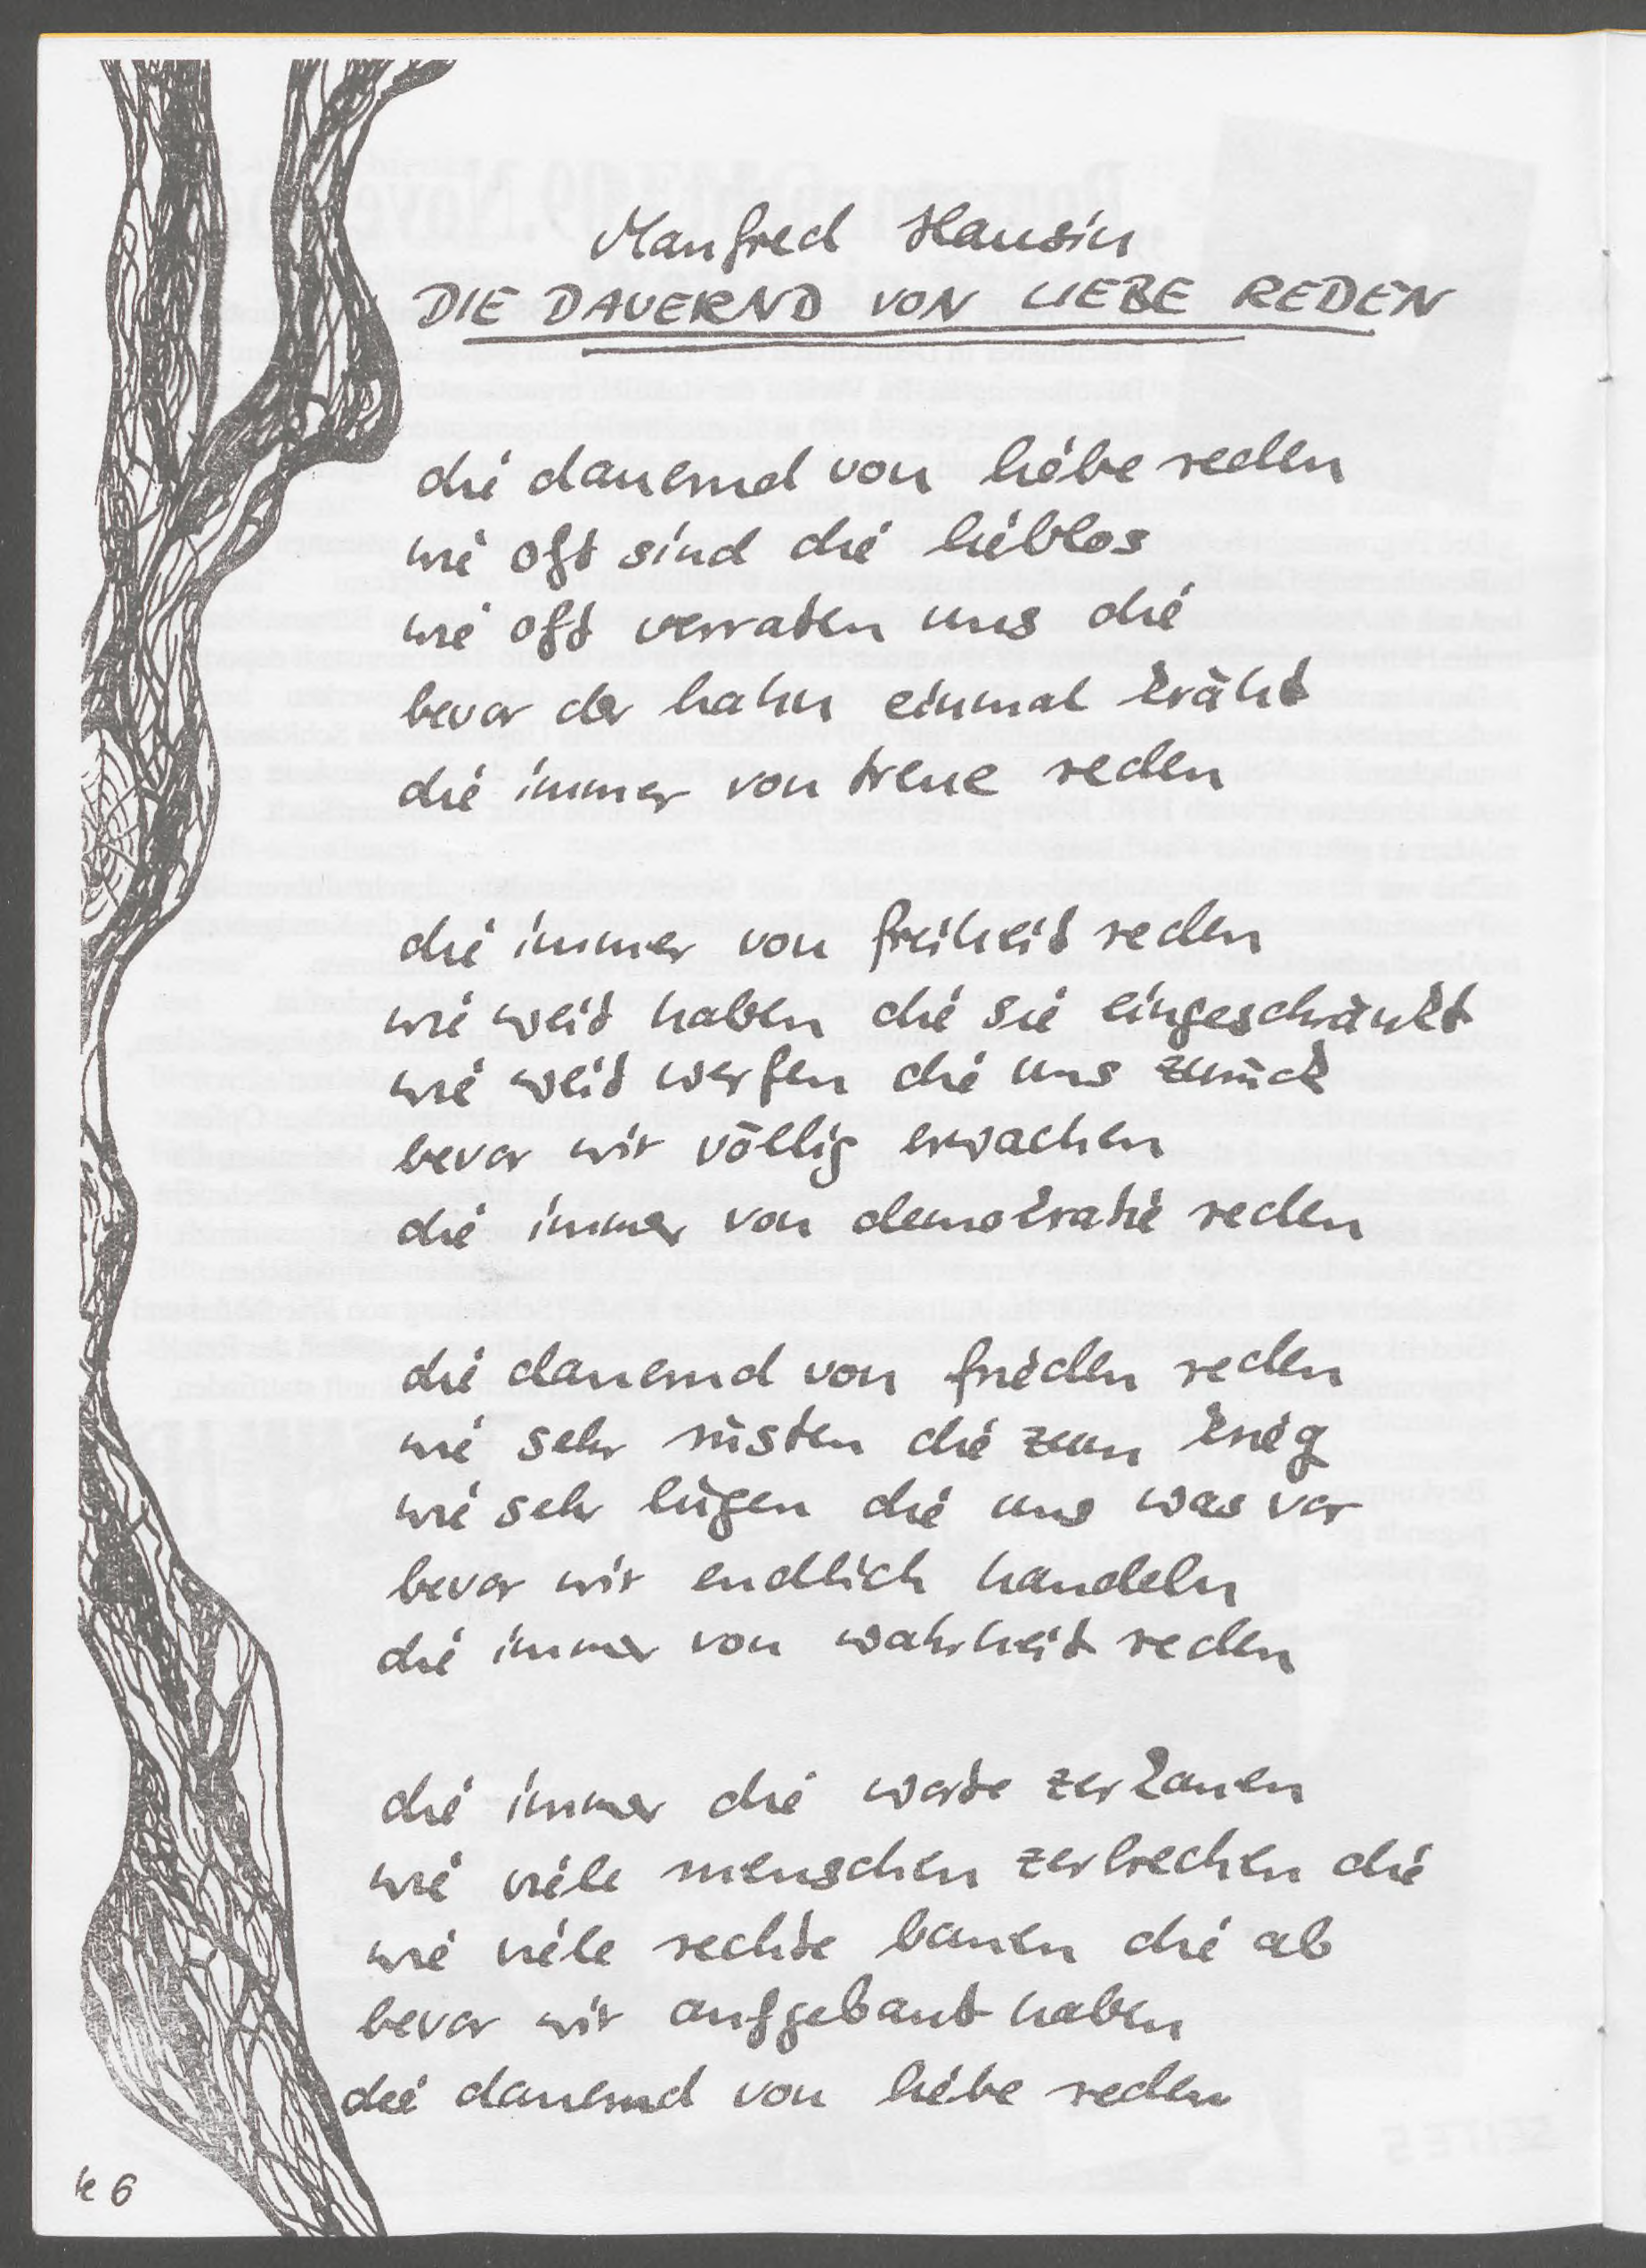 Manfred Hausin
DIE DAUERND VON LIEBE REDEN
die dauernd von liebe reden
wie oft sind die lieblos
wie oft verraten uns die
bevor der hahn einmal kräht
die immer von treue reden
die immer von freiheit reden
wie weit haben die sie eingeschränkt
wie weit werfen die uns zurück
bevor wir völlig erwachen
die immer von demokratie reden
die dauernd von frieden reden
wie sehr rüsten die zum krieg
wie sehr lügen die uns was vor
bevor wir endlich handeln
die immer von wahrheit reden
die immer die worte zerkauen
wie viele menschen zerbrechen die
wie viele rechte bauen die ab
bevor wir aufgebaut haben
die dauernd von liebe reden
6